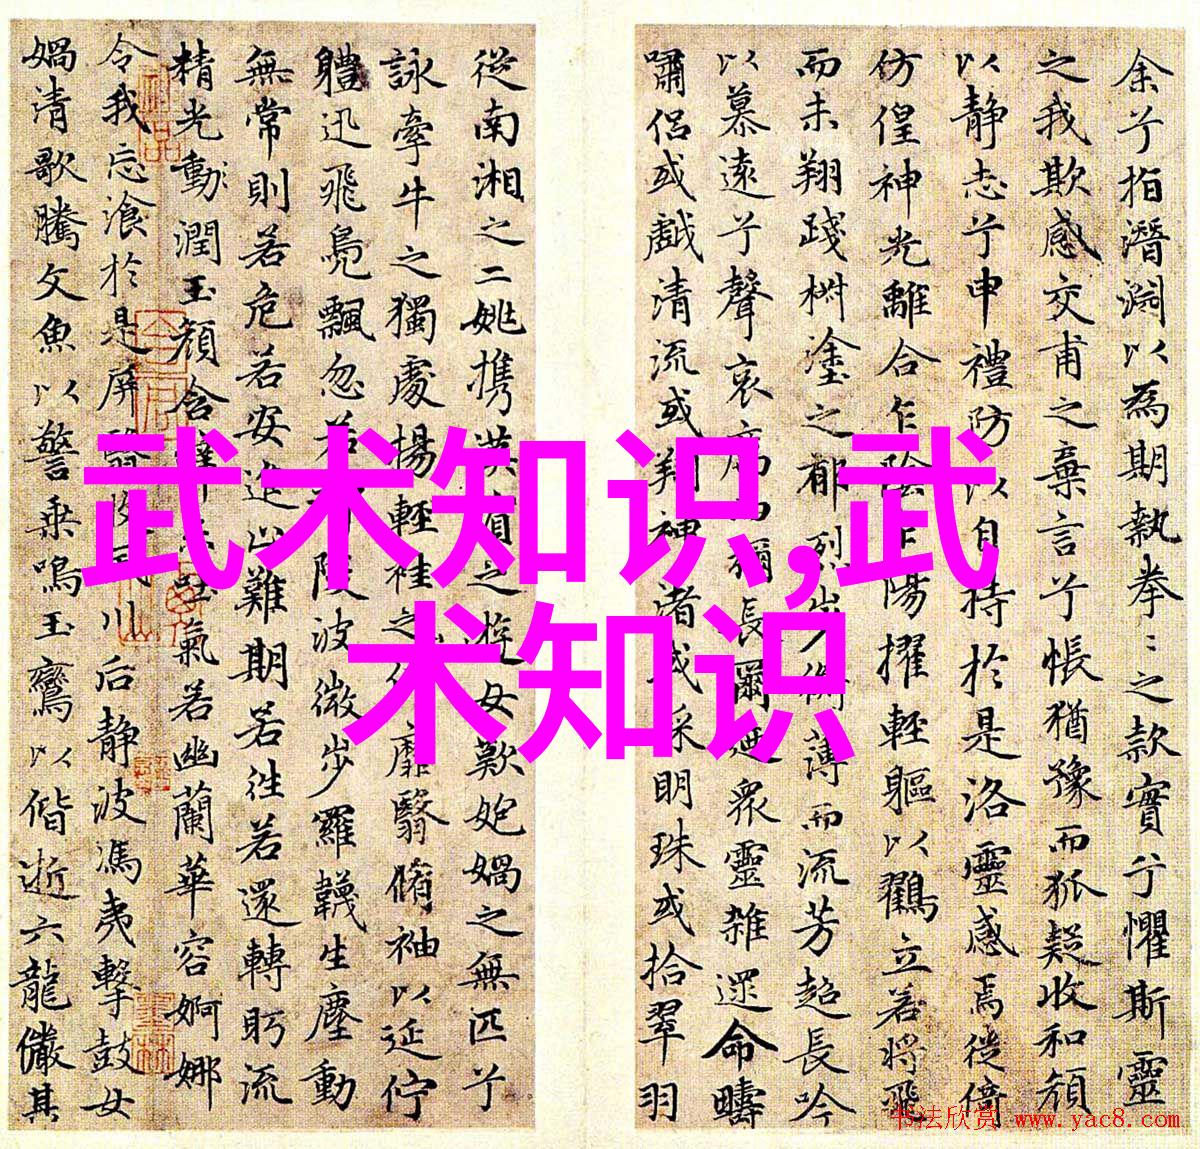 余兮指潛淵以為期執拳〻之款實兮懼斯靈
之我欺感交甫之棄言兮悵猶豫而狐疑收和顏
以静志兮申禮防以自持於是洛靈感焉徙倚
仿偟神光離合乍陰乍陽擢輕軀以鶴立若將飛
而未翔踐椒塗之郁烈步蘅薄而流芳超長吟
以慕遠兮聲哀厲而彌長爾迺衆靈雜遝命疇
嘯侶或戲清流或翔神渚或采明珠或拾翠羽
從南湘之二姚攜漢濱之遊女歎匏媧之無匹兮
詠牽牛之獨處揚輕袿之猗靡翳脩袖以延佇
體迅飛鳧飄忽若神陵波微步羅韈生塵動
無常則若危若安進止難期若往若還轉眄流
精光動潤玉顏含辭未吐氣若幽蘭華容婀娜
令我忘湌於是屏翳收風川后静波馮夷擊鼓女
媧清歌騰文魚以警乘鳴玉鸞以偕逝六龍儼其
武术知识,武
术知识
书法欣赏 www.yac8.com